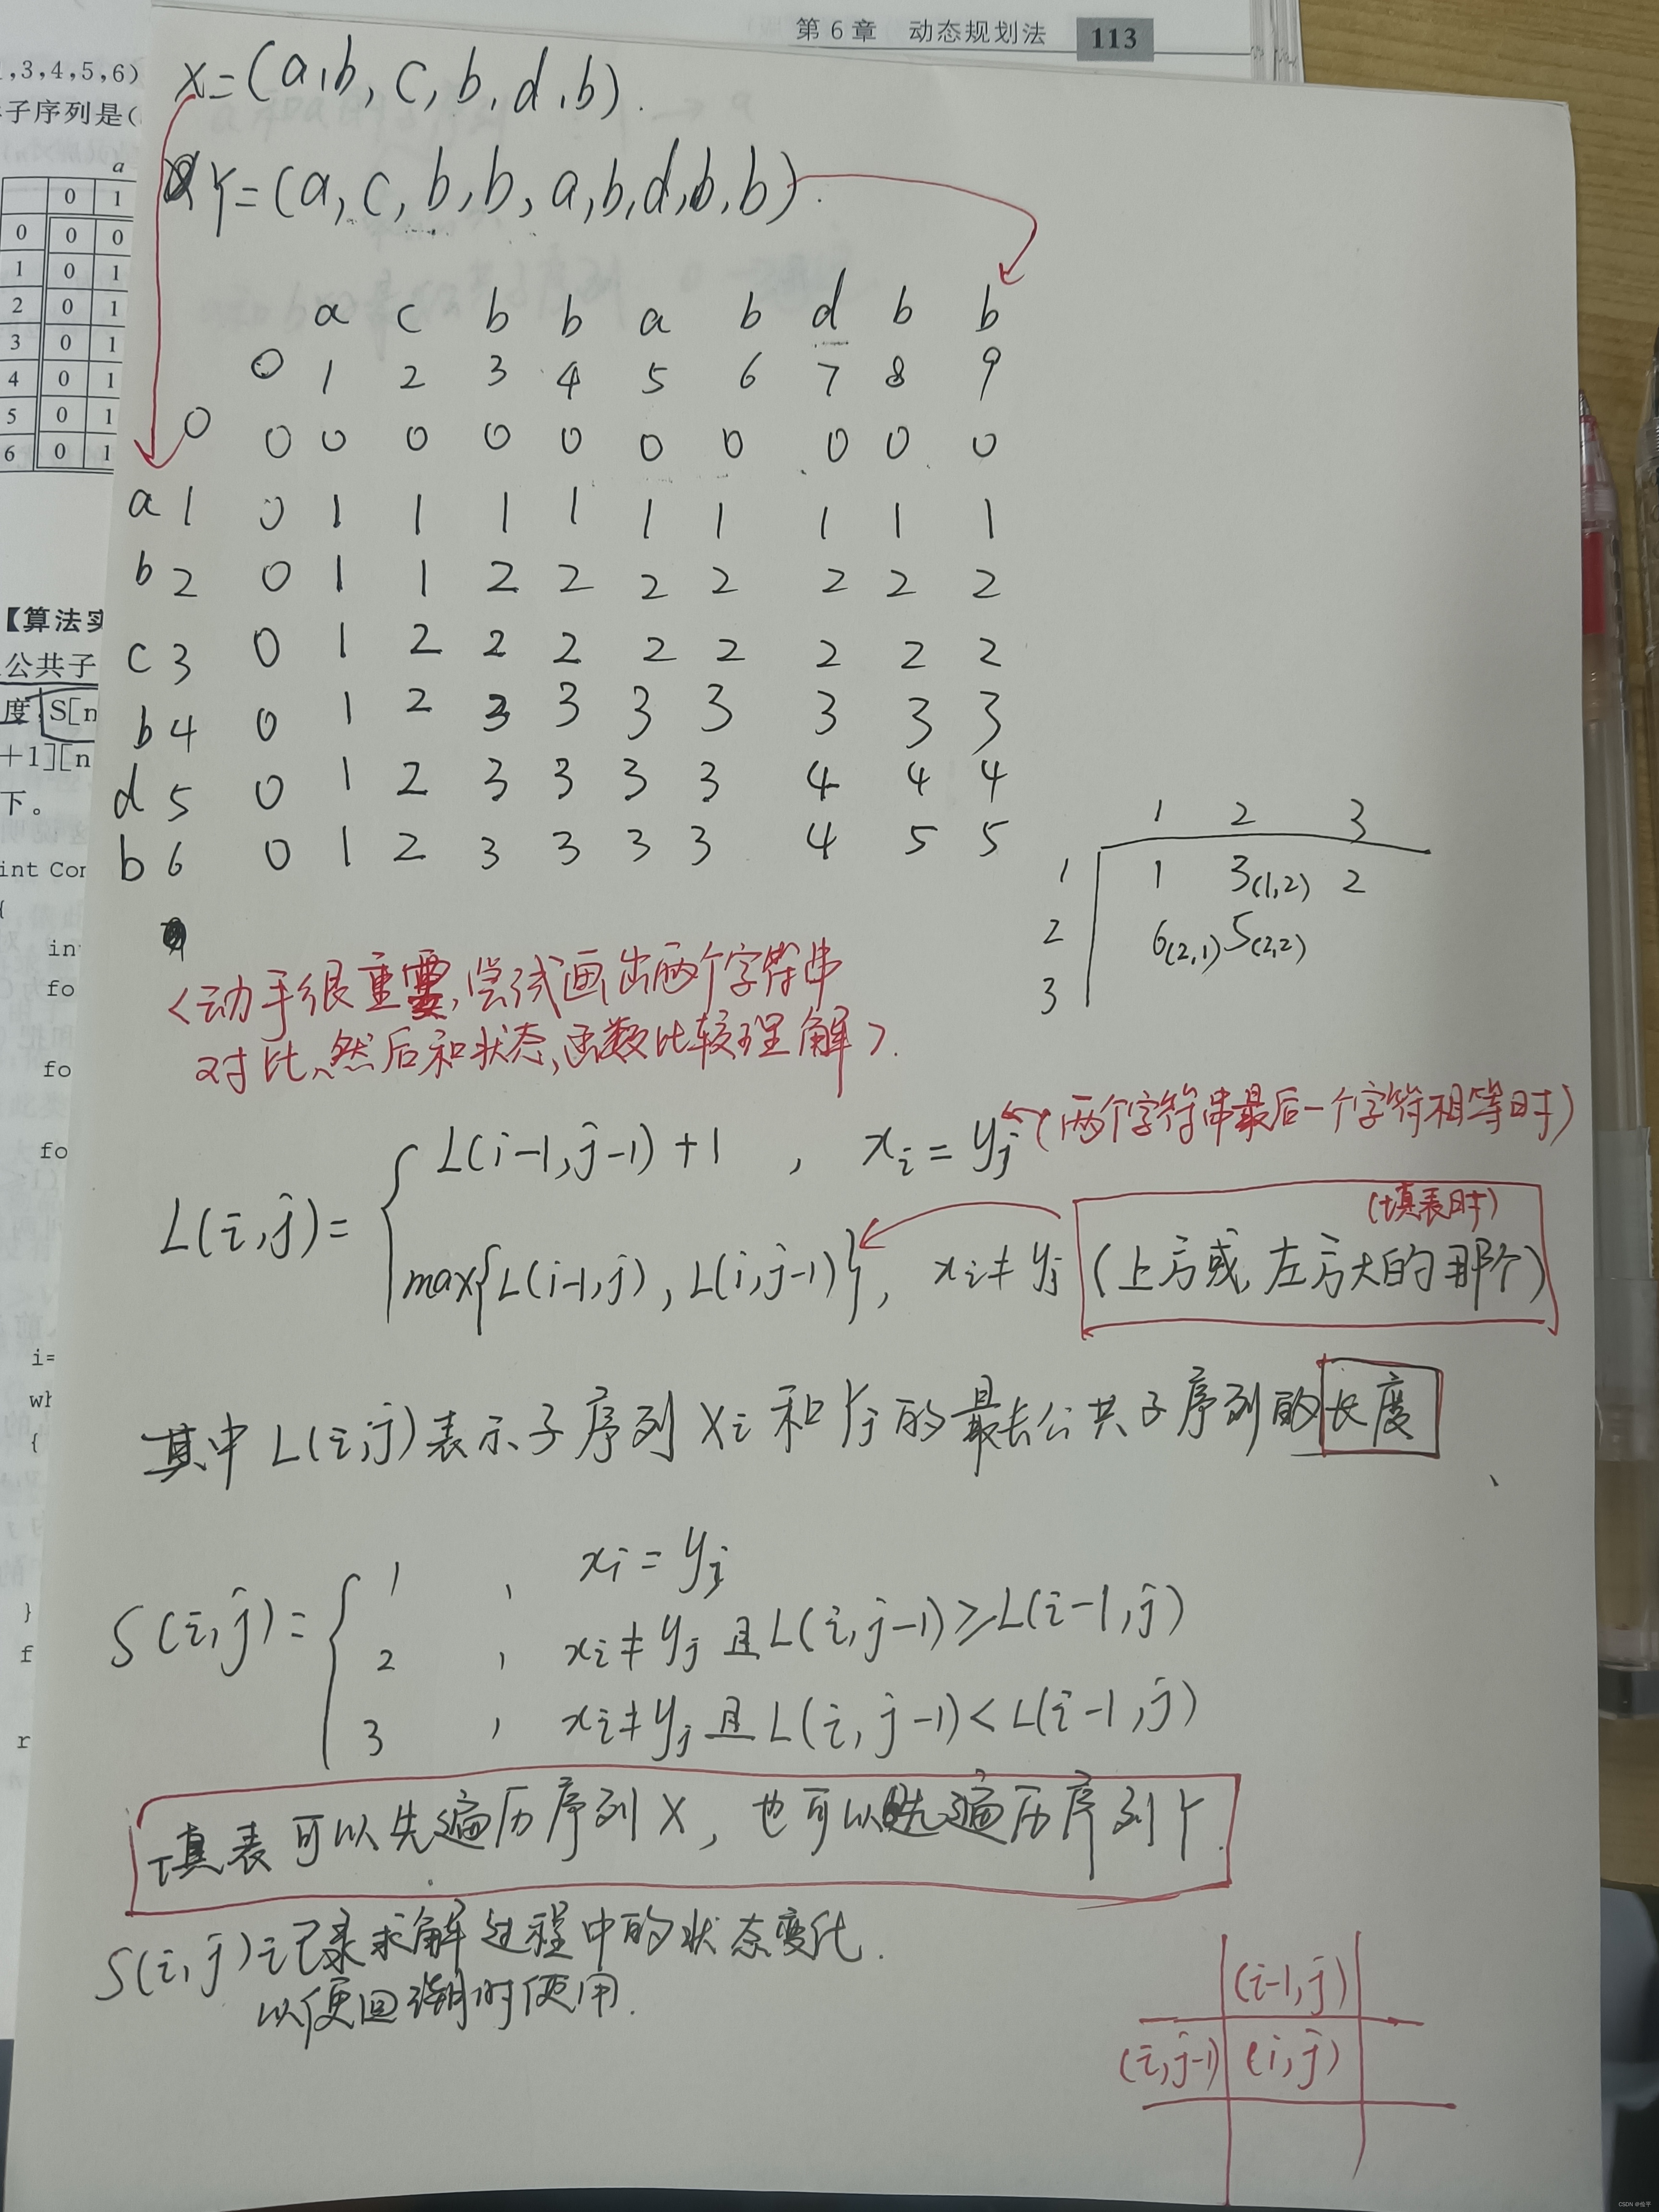 第6章 动态规划法 113
,3,4,5,6)
子序列是(
a
0 1
0 0 0
1 0 1
2 0 1
3 0 1
4 0 1
5 0 1
6 0 1
【算法实
公共子
度,S[n
+1][n
下。
int Con
{
in
fo
fo
fo
i=
wh
{
}
f
r
X=(a,b,c,b,d,b).
Y=(a,c,b,b,a,b,d,b,b).
a c b b a b d b b
0 1 2 3 4 5 6 7 8 9
0 0 0 0 0 0 0 0 0 0 0
a 1 0 1 1 1 1 1 1 1 1 1
b 2 0 1 1 2 2 2 2 2 2 2
c 3 0 1 2 2 2 2 2 2 2 2
b 4 0 1 2 3 3 3 3 3 3 3
d 5 0 1 2 3 3 3 3 4 4 4
b 6 0 1 2 3 3 3 3 4 5 5
1 2 3
1 1 3(1,2) 2
2 6(2,1) 5(2,2)
3
<动手很重要,尝试画出两个字符串
对比、然后和状态函数比较理解>.
L(i,j)={
L(i-1,j-1)+1 , xi=yj (两个字符串最后一个字符相等时)
max{L(i-1,j),L(i,j-1)}, xi≠yj (上方或左方大的那个)
(填表时)
其中L(i,j)表示子序列Xi和Yj的最长公共子序列的长度
S(i,j)={
1 , xi=yj
2 , xi≠yj且L(i,j-1)≥L(i-1,j)
3 , xi≠yj且L(i,j-1)<L(i-1,j)
填表可以先遍历序列X,也可以先遍历序列Y.
S(i,j)记录求解过程中的状态变化.
以便回溯时使用.
(i-1,j)
(i,j-1) (i,j)
CSDN